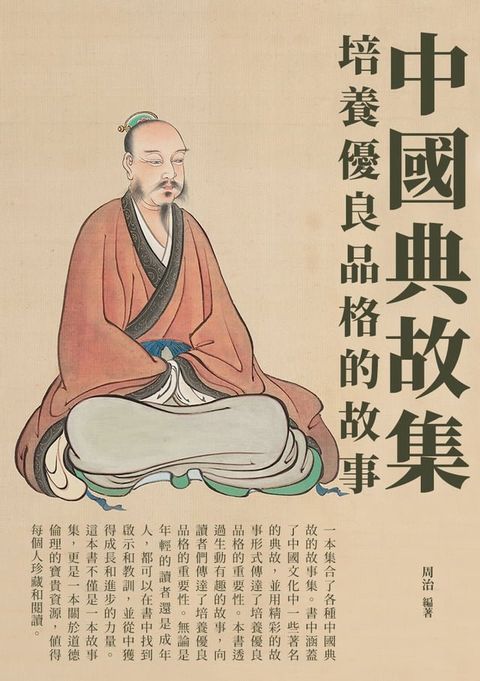 中國典故集
培養優良品格的故事
周治 編著
一本集合了各種中國典
故的故事集。書中涵蓋
了中國文化中一些著名
的典故，並用精彩的故
事形式傳達了培養優良
品格的重要性。本書透
過生動有趣的故事，向
讀者們傳達了培養優良
品格的重要性。無論是
年輕的讀者還是成年
人，都可以在書中找到
啟示和教訓，並從中獲
得成長和進步的力量。
這本書不僅是一本故事
集，更是一本關於道德
倫理的寶貴資源，值得
每個人珍藏和閱讀。